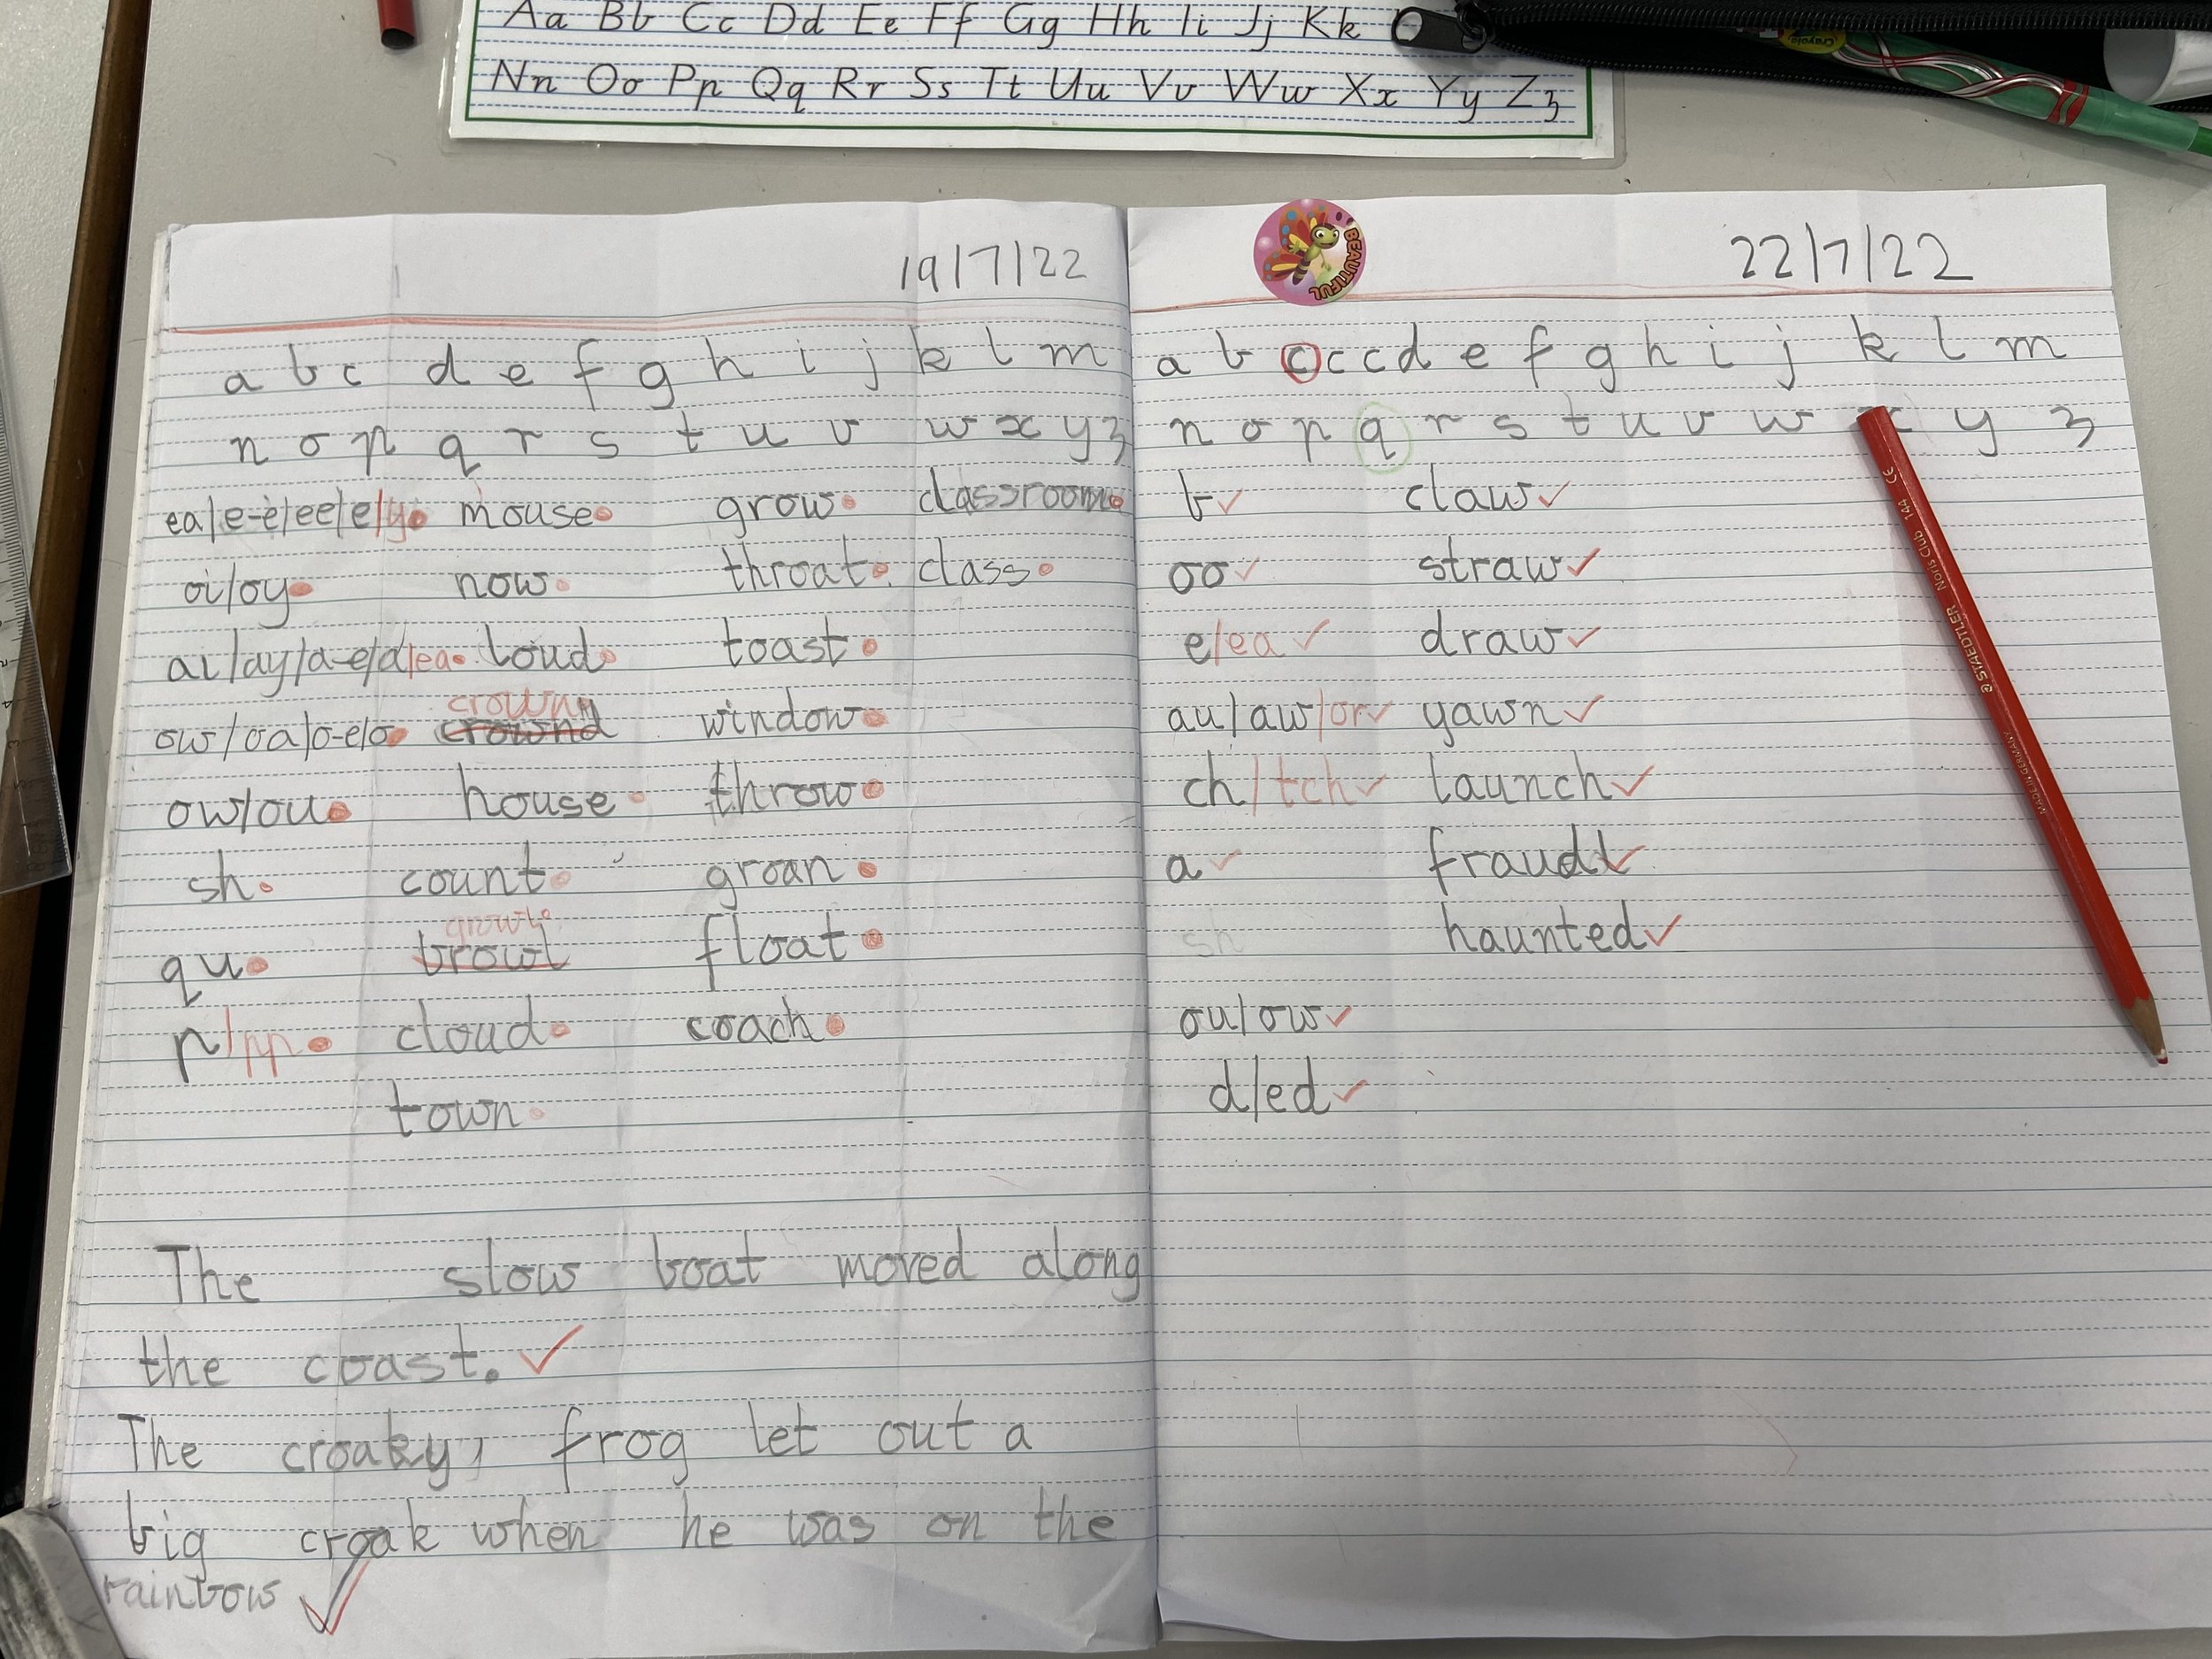 Aa Bb Cc Dd Ee Ff Gg Hh Ii Jj Kk
Nn Oo Pp Qq Rr Ss Tt Uu Vv Ww Xx Yy Zz
Crayola
19/7/22
a b c d e f g h i j k l m
n o p q r s t u v w x y z
ea/e-e/ee/e/y mouse grow classroom
oi/oy now throat class
ai/ay/a-e/a/ea loud toast
crown
ow/oa/o-e/o crownd window
ow/ou house throw
sh count groan
growl
qu browl float
p/pp cloud coach
town
The slow boat moved along
the coast.
The croaky, frog let out a
big croak when he was on the
rainbow
BEAUTIFUL
22/7/22
a b c c c d e f g h i j k l m
n o p q r s t u v w x y z
b claw
oo straw
e/ea draw
au/aw/or yawn
ch/tch launch
a fraud
sh haunted
ou/ow
d/ed
STAEDTLER Noris Club 144 CE
MADE IN GERMANY